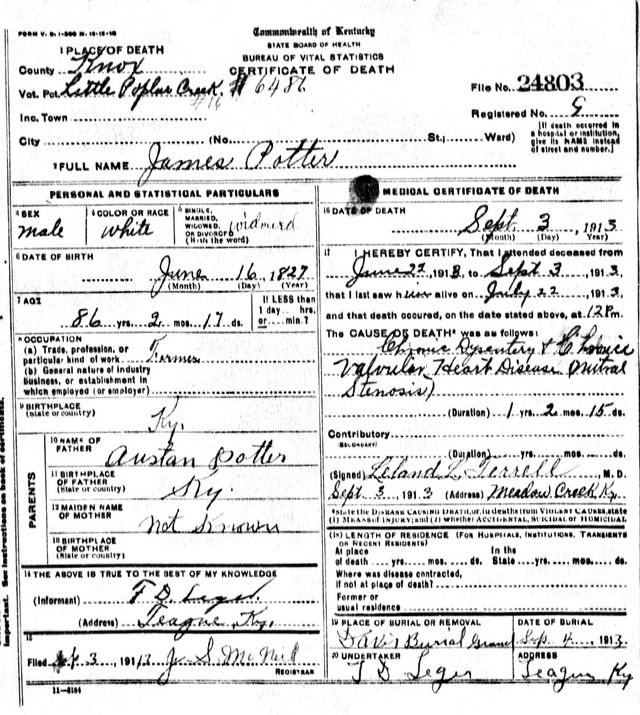 FORM V. S. 1-500 M. 10-15-10
Commonwealth of Kentucky
STATE BOARD OF HEALTH
BUREAU OF VITAL STATISTICS
CERTIFICATE OF DEATH
1 PLACE OF DEATH
County Knox
Vot. Pct. Little Poplar Creek. # 6486
#16
Inc. Town
City (No. St.; Ward)
File No. 24803
Registered No. 9
[If death occurred in
a hospital or institution,
give its NAME instead
of street and number.]
2 FULL NAME James Potter
PERSONAL AND STATISTICAL PARTICULARS
3 SEX
male
4 COLOR OR RACE
White
5 SINGLE,
MARRIED,
WIDOWED,
OR DIVORCED
(Write the word)
widowed
6 DATE OF BIRTH
June 16, 1827
(Month) (Day) (Year)
7 AGE
86 yrs. 2 mos. 17 ds.
If LESS than
1 day... hrs.
or... min.?
8 OCCUPATION
(a) Trade, profession, or
particular kind of work Farmer
(b) General nature of industry
business, or establishment in
which employed (or employer)
9 BIRTHPLACE
(State or country) Ky.
PARENTS
10 NAME OF
FATHER
Austan Potter
11 BIRTHPLACE
OF FATHER
(State or country) Ky.
12 MAIDEN NAME
OF MOTHER
Not Known
13 BIRTHPLACE
OF MOTHER
(State or country)
14 THE ABOVE IS TRUE TO THE BEST OF MY KNOWLEDGE
(Informant) T. D. Leger
(Address) Teague, Ky.
15
Filed Sept. 3, 1913 J. S. McNeil
REGISTRAR
11-3184
MEDICAL CERTIFICATE OF DEATH
16 DATE OF DEATH
Sept. 3, 1913
(Month) (Day) (Year)
17 I HEREBY CERTIFY, That I attended deceased from
June 22, 1913, to Sept 3, 1913,
that I last saw him alive on July 22, 1913,
and that death occured, on the date stated above, at 12 P m.
The CAUSE OF DEATH* was as follows:
Chronic Dysentery & Chronic
Valvular Heart Disease Mitral
Stenosis)
(Duration) 1 yrs. 2 mos. 15 ds.
Contributory
(SECONDARY)
(Duration) yrs. mos. ds.
(Signed) Leland L. Terrell, M. D.
Sept. 3, 1913 (Address) Meadow Creek Ky
*State the DISEASE CAUSING DEATH, or, in deaths from VIOLENT CAUSES, state
(1) MEANS OF INJURY; and (2) whether ACCIDENTAL, SUICIDAL OR HOMICIDAL
18 LENGTH OF RESIDENCE (FOR HOSPITALS, INSTITUTIONS, TRANSIENTS
OR RECENT RESIDENTS)
At place
of death yrs. mos. ds.
In the
State yrs. mos. ds.
Where was disease contracted,
if not at place of death?
Former or
usual residence
19 PLACE OF BURIAL OR REMOVAL
Davis Burial Ground
DATE OF BURIAL
Sep. 4, 1913
20 UNDERTAKER
T D Leger
ADDRESS
Teague Ky
important. See instructions on back of certificate.